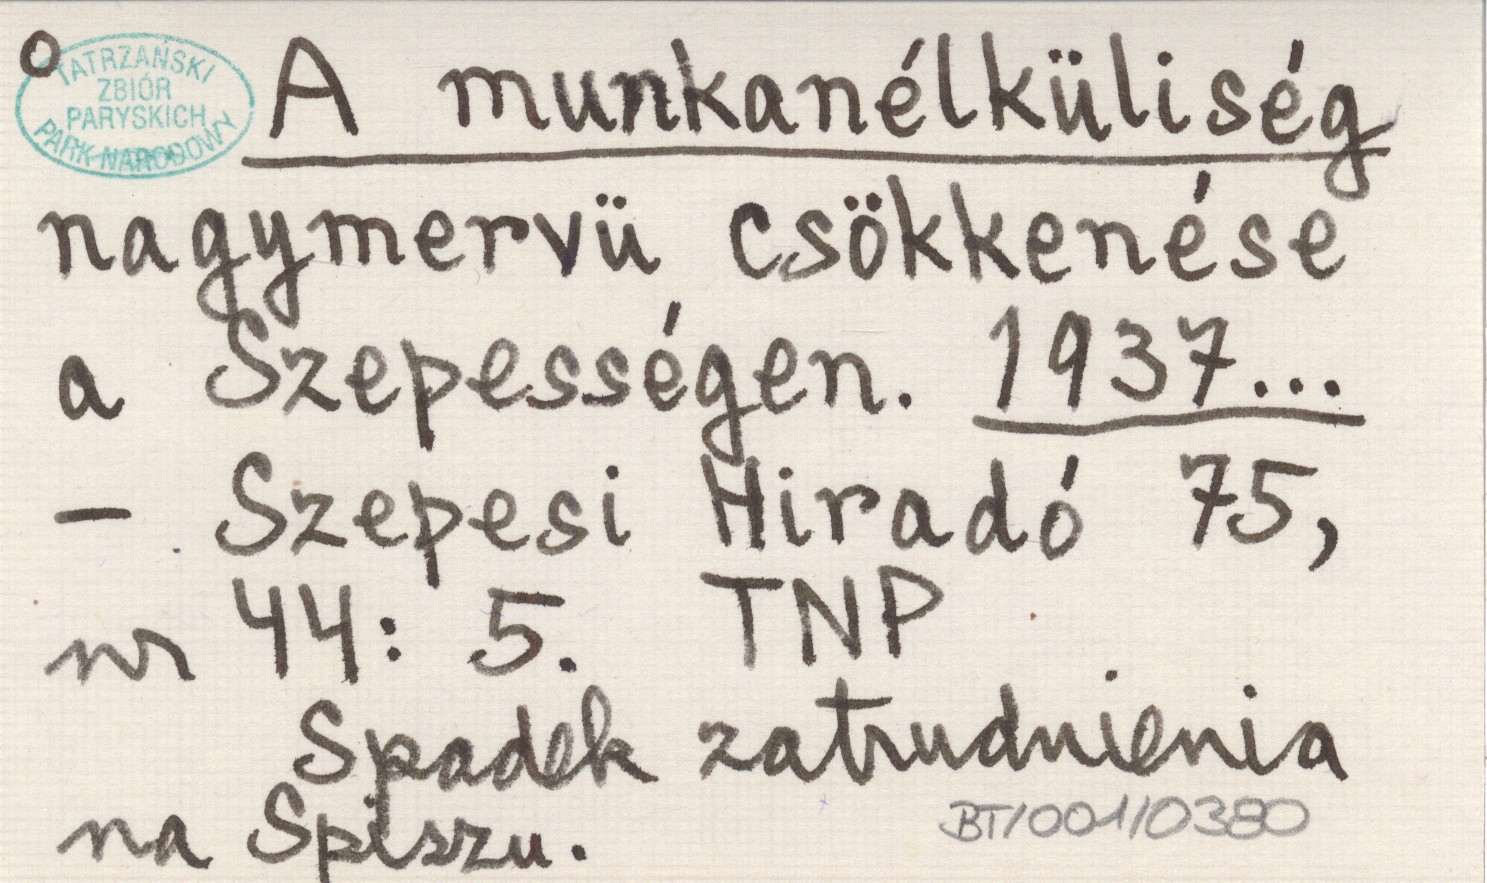 TATRZAŃSKI
ZBIÓR
PARYSKICH
PARK NARODOWY
A munkanélküliség
nagymervü csökkenése
a Szepességen. 1937...
- Szepesi Hiradó 75,
nr 44: 5. TNP
Spadek zatrudnienia
na Spiszu.
BT/001/0380